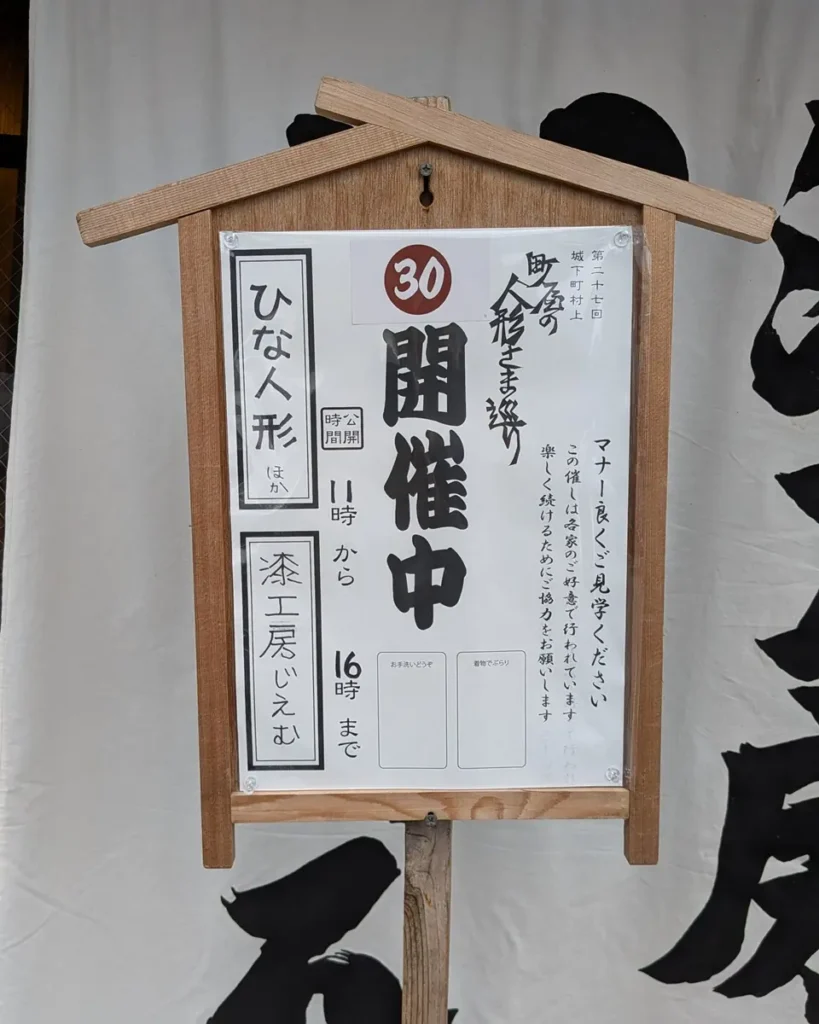 第二十七回
城下町村上
町屋の
人形さま巡り
マナー良くご見学ください
この催しは各家のご好意で行われています
楽しく続けるためにご協力をお願いします
30
開催中
着物でぶらり
お手洗いどうぞ
公開
時間
11時 から
16時 まで
ひな人形 ほか
漆工房じえむ